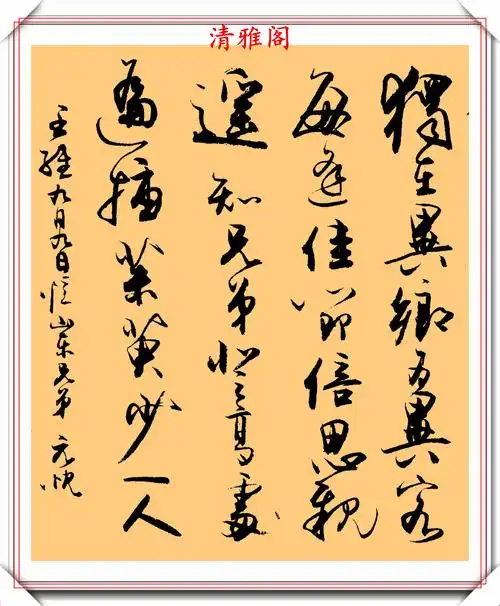 清雅阁
獨在異鄉為異客
每逢佳節倍思親
遥知兄弟登高處
遍插茱萸少一人
王維九月九日憶山東兄弟 元忱